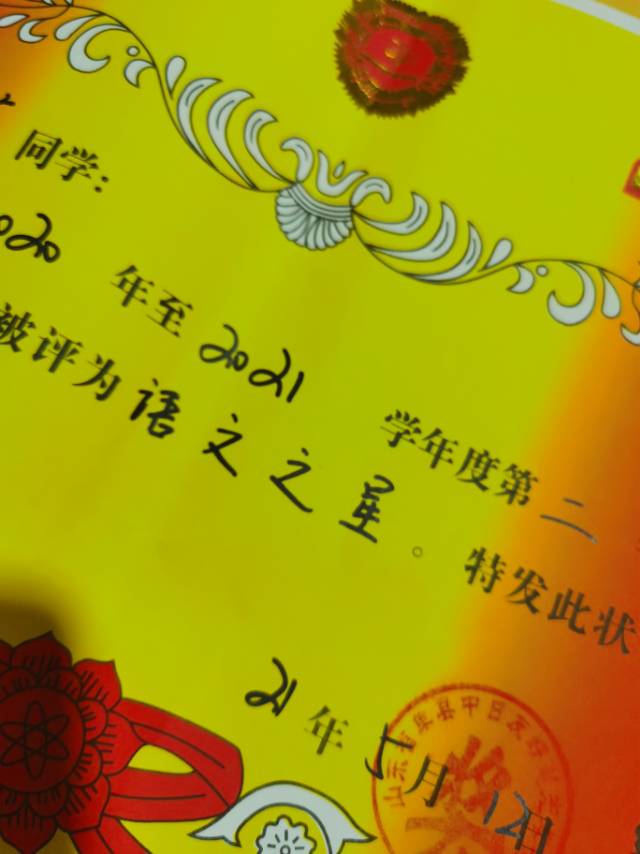 同学：
2020 年至 2021 学年度第二
被评为语文之星。特发此状
21年5月12日